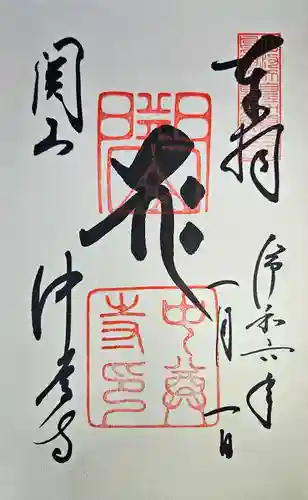 奉拝
令和六年
一月一日
關山
中尊寺印
関山
中尊寺